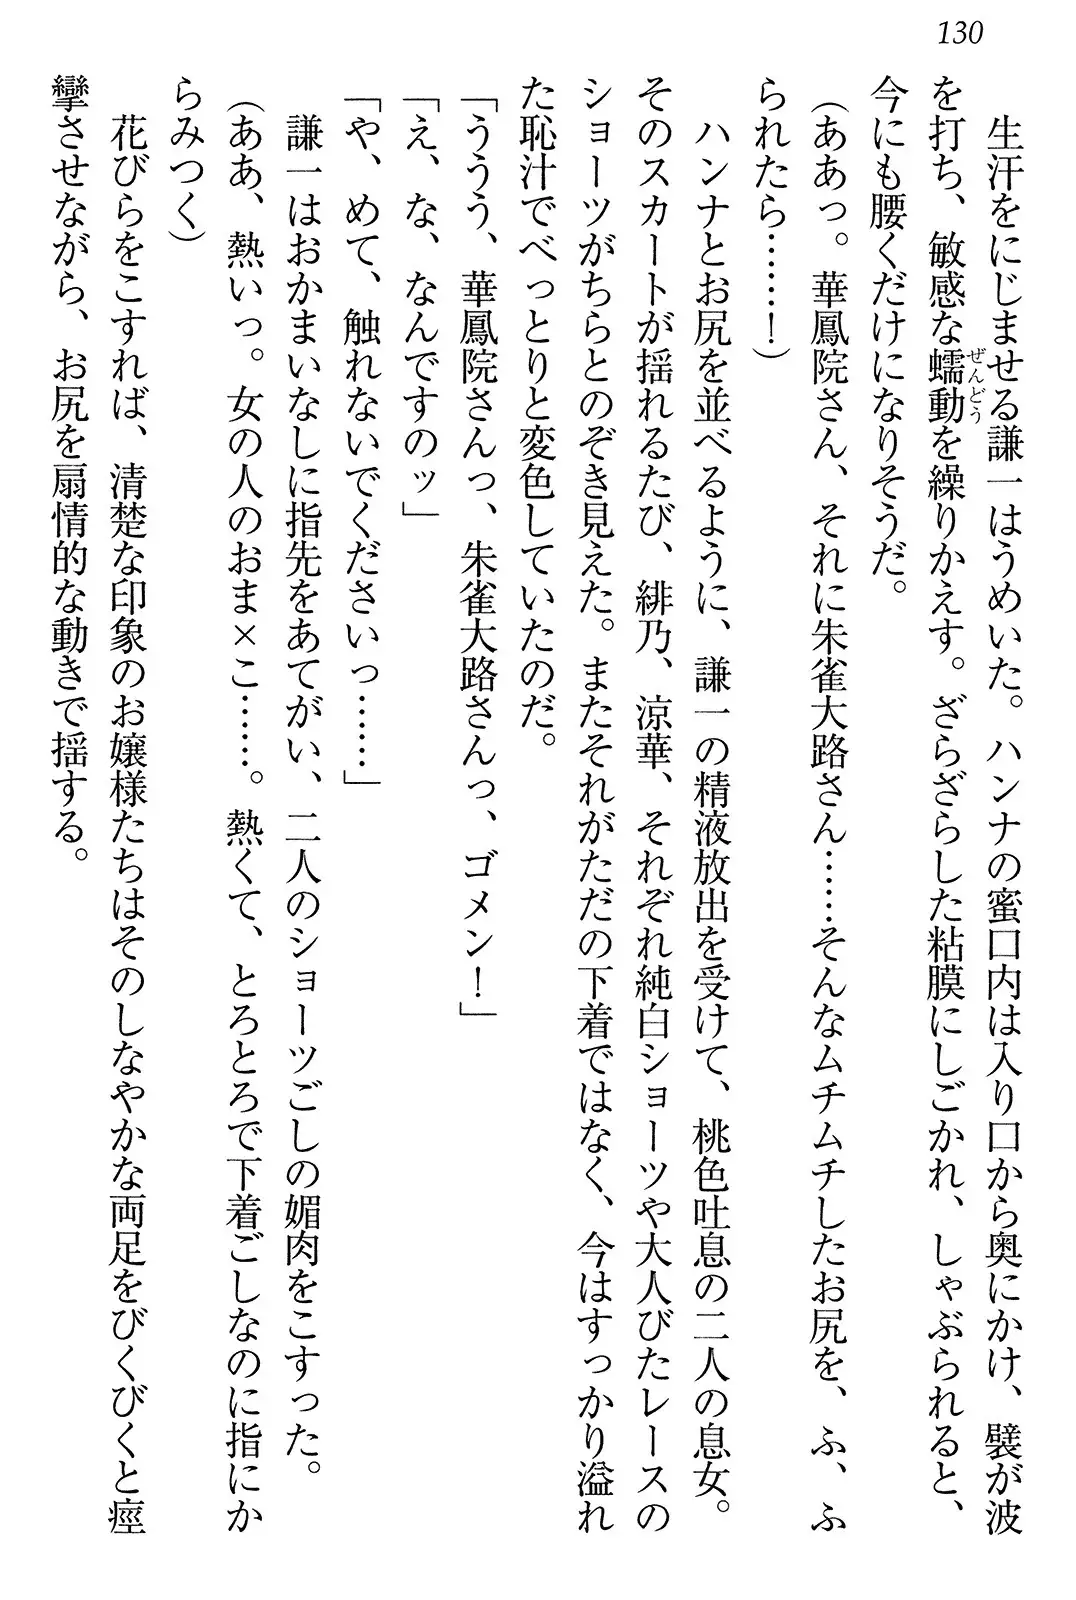 130
生汗をにじませる謙一はうめいた。ハンナの蜜口内は入り口から奥にかけ、襞が波
を打ち、敏感な蠕動(ぜんどう)を繰りかえす。ざらざらした粘膜にしごかれ、しゃぶられると、
今にも腰くだけになりそうだ。
(ああっ。華鳳院さん、それに朱雀大路さん……そんなムチムチしたお尻を、ふ、ふ
られたら……!)
ハンナとお尻を並べるように、謙一の精液放出を受けて、桃色吐息の二人の息女。
そのスカートが揺れるたび、緋乃、涼華、それぞれ純白ショーツや大人びたレースの
ショーツがちらとのぞき見えた。またそれがただの下着ではなく、今はすっかり溢れ
た恥汁でべっとりと変色していたのだ。
「ううう、華鳳院さんっ、朱雀大路さんっ、ゴメン!」
「え、な、なんですのッ」
「や、めて、触れないでくださいっ……」
謙一はおかまいなしに指先をあてがい、二人のショーツごしの媚肉をこすった。
(ああ、熱いっ。女の人のおま×こ……。熱くて、とろとろで下着ごしなのに指にか
らみつく)
花びらをこすれば、清楚な印象のお嬢様たちはそのしなやかな両足をびくびくと痙
攣させながら、お尻を扇情的な動きで揺する。